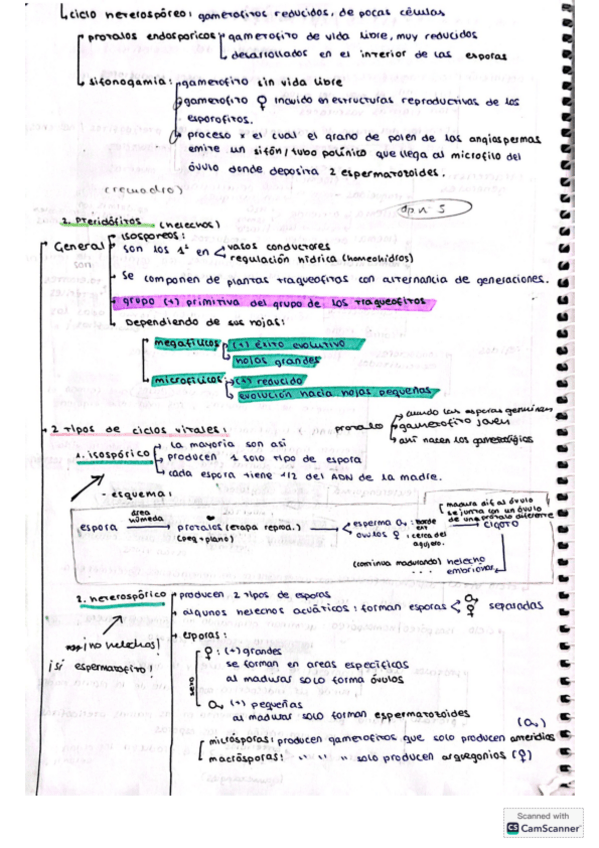 ciclo heterospóreo: gametofitos reducidos, de pocas células
protalos endospóricos gametofito de vida libre, muy reducidos
desarrollados en el interior de las esporas
sifonogamia: gametofito sin vida libre
gametofito ♀ incluido en estructuras reproductivas de los
esporofitos.
proceso x el cual el grano de polen de las angiospermas
emite un sifón/tubo polínico que llega al micrófilo del
óvulo donde deposita 2 espermatozoides.
(recuadro)
2. Pteridófitos (helechos)
General
isosporeos:
son los 1º en vasos conductores
regulación hídrica (homeohidros)
Se componen de plantas traqueofitas con alternancia de generaciones.
grupo (+) primitiva del grupo de los traqueofitos
Dependiendo de sus hojas:
megafílicos (+) éxito evolutivo
hojas grandes
microfílicos (+) reducido
evolución hacia hojas pequeñas
2 tipos de ciclos vitales:
protalo cuando las esporas germinan
gametofito joven
ahí nacen los
1. isospórico la mayoría son así
producen 1 solo tipo de espora
cada espora tiene 1/2 del ADN de la madre.
- esquema:
espora área húmeda protalos (etapa reprod.)
(peq + plano)
esperma ♂:
óvulos ♀: cerca del
se junta con un óvulo
de una protalo diferente
CIGOTO
(continua madurando) helecho
embrionar.
2. heterospórico producen 2 tipos de esporas
algunos helechos acuáticos: forman esporas ♂ ♀ separadas
¡no helechos!
¡sí espermatofito!
esporas:
sexo
♀: (+) grandes
se forman en areas específicas
al madurar solo forma óvulos
♂ (+) pequeñas
al madurar solo forman espermatozoides
(♂)
micrósporas: producen gametofitos que solo producen ameridios
macrósporas: " " " solo producen arquegonios (♀)
Scanned with
CS CamScanner